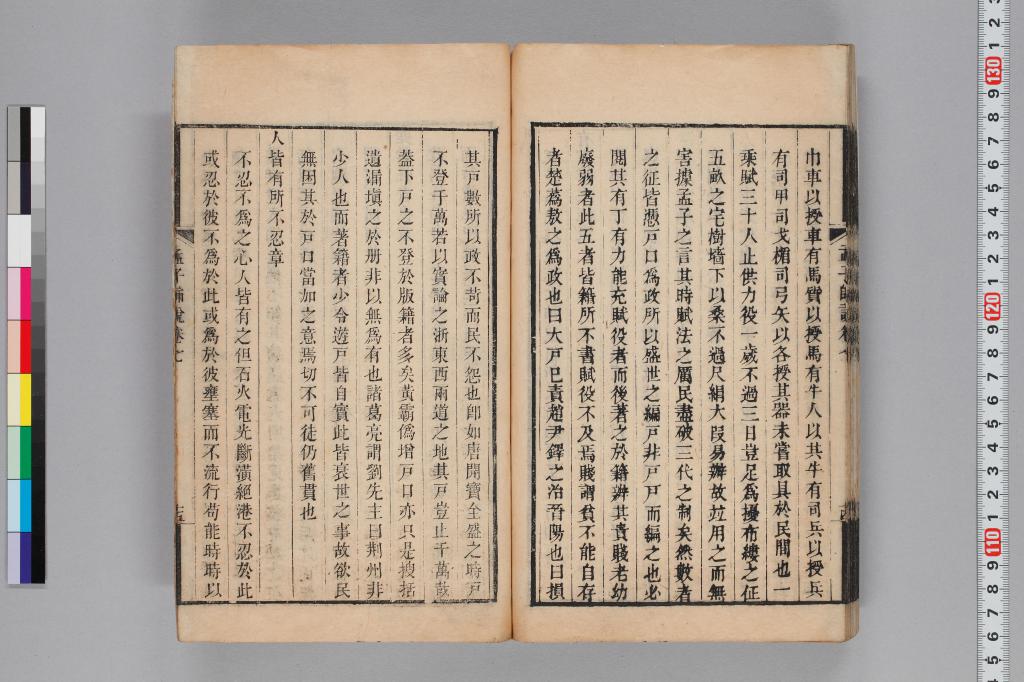 巾車以授車有馬賈以授馬有牛人以其牛有司兵以授兵
有司甲司戈楯司弓矢以各授其器未嘗取具於民間也一
乘賦三十人止供力役一歲不過三日豈足為擾布縷之征
五畝之宅樹墻下以桑不過尺絹大段易辦故竝用之而無
害據孟子之言其時賦法之厲民盡破三代之制矣然數者
之征皆憑戸口為政所以盛世之編戸非戸戸而編之也必
閱其有丁有力能充賦役者而後著之於籍辨其貴賤老幼
廢弱者此五者皆籍所不書賦役不及焉賤謂貧不能自存
者楚蒍敖之為政也曰大戸已責趙尹鐸之治晉陽也曰損
其戸數所以政不苛而民不怨也卽如唐開寶全盛之時戸
不登千萬若以實論之浙東西兩道之地其戸豈止千萬哉
蓋下戸之不登於版籍者多矣黃霸偽增戸口亦只是搜括
遺漏塡之於册非以無為有也諸葛亮謂劉先主曰荆州非
少人也而著籍者少令遊戸皆自實此皆衰世之事故欲民
無困其於戸口當加之意焉切不可徒仍舊貫也
人皆有所不忍章
不忍不為之心人皆有之但石火電光斷潢絕港不忍於此
或忍於彼不為於此或為於彼壅塞而不流行苟能時時以